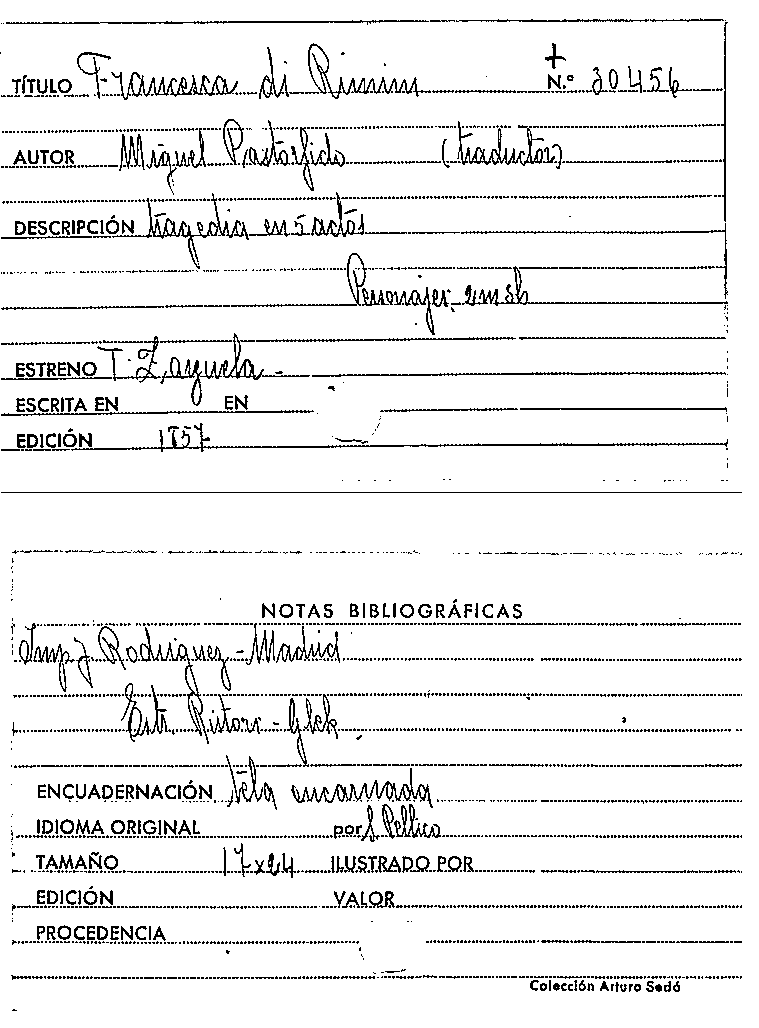 +
TÍTULO Francesca di Rimini N.º 30456
AUTOR Miguel Pastorfido (traductor)
DESCRIPCIÓN tragedia en 5 actos
Personajes
ESTRENO T. Zarzuela -
ESCRITA EN EN
EDICIÓN 1857
NOTAS BIBLIOGRÁFICAS
Imp J Rodriguez - Madrid
Estr. Ristori -
ENCUADERNACIÓN tela encarnada
IDIOMA ORIGINAL por S. Pellico
TAMAÑO 17x24 ILUSTRADO POR
EDICIÓN VALOR
PROCEDENCIA
Colección Arturo Sedó